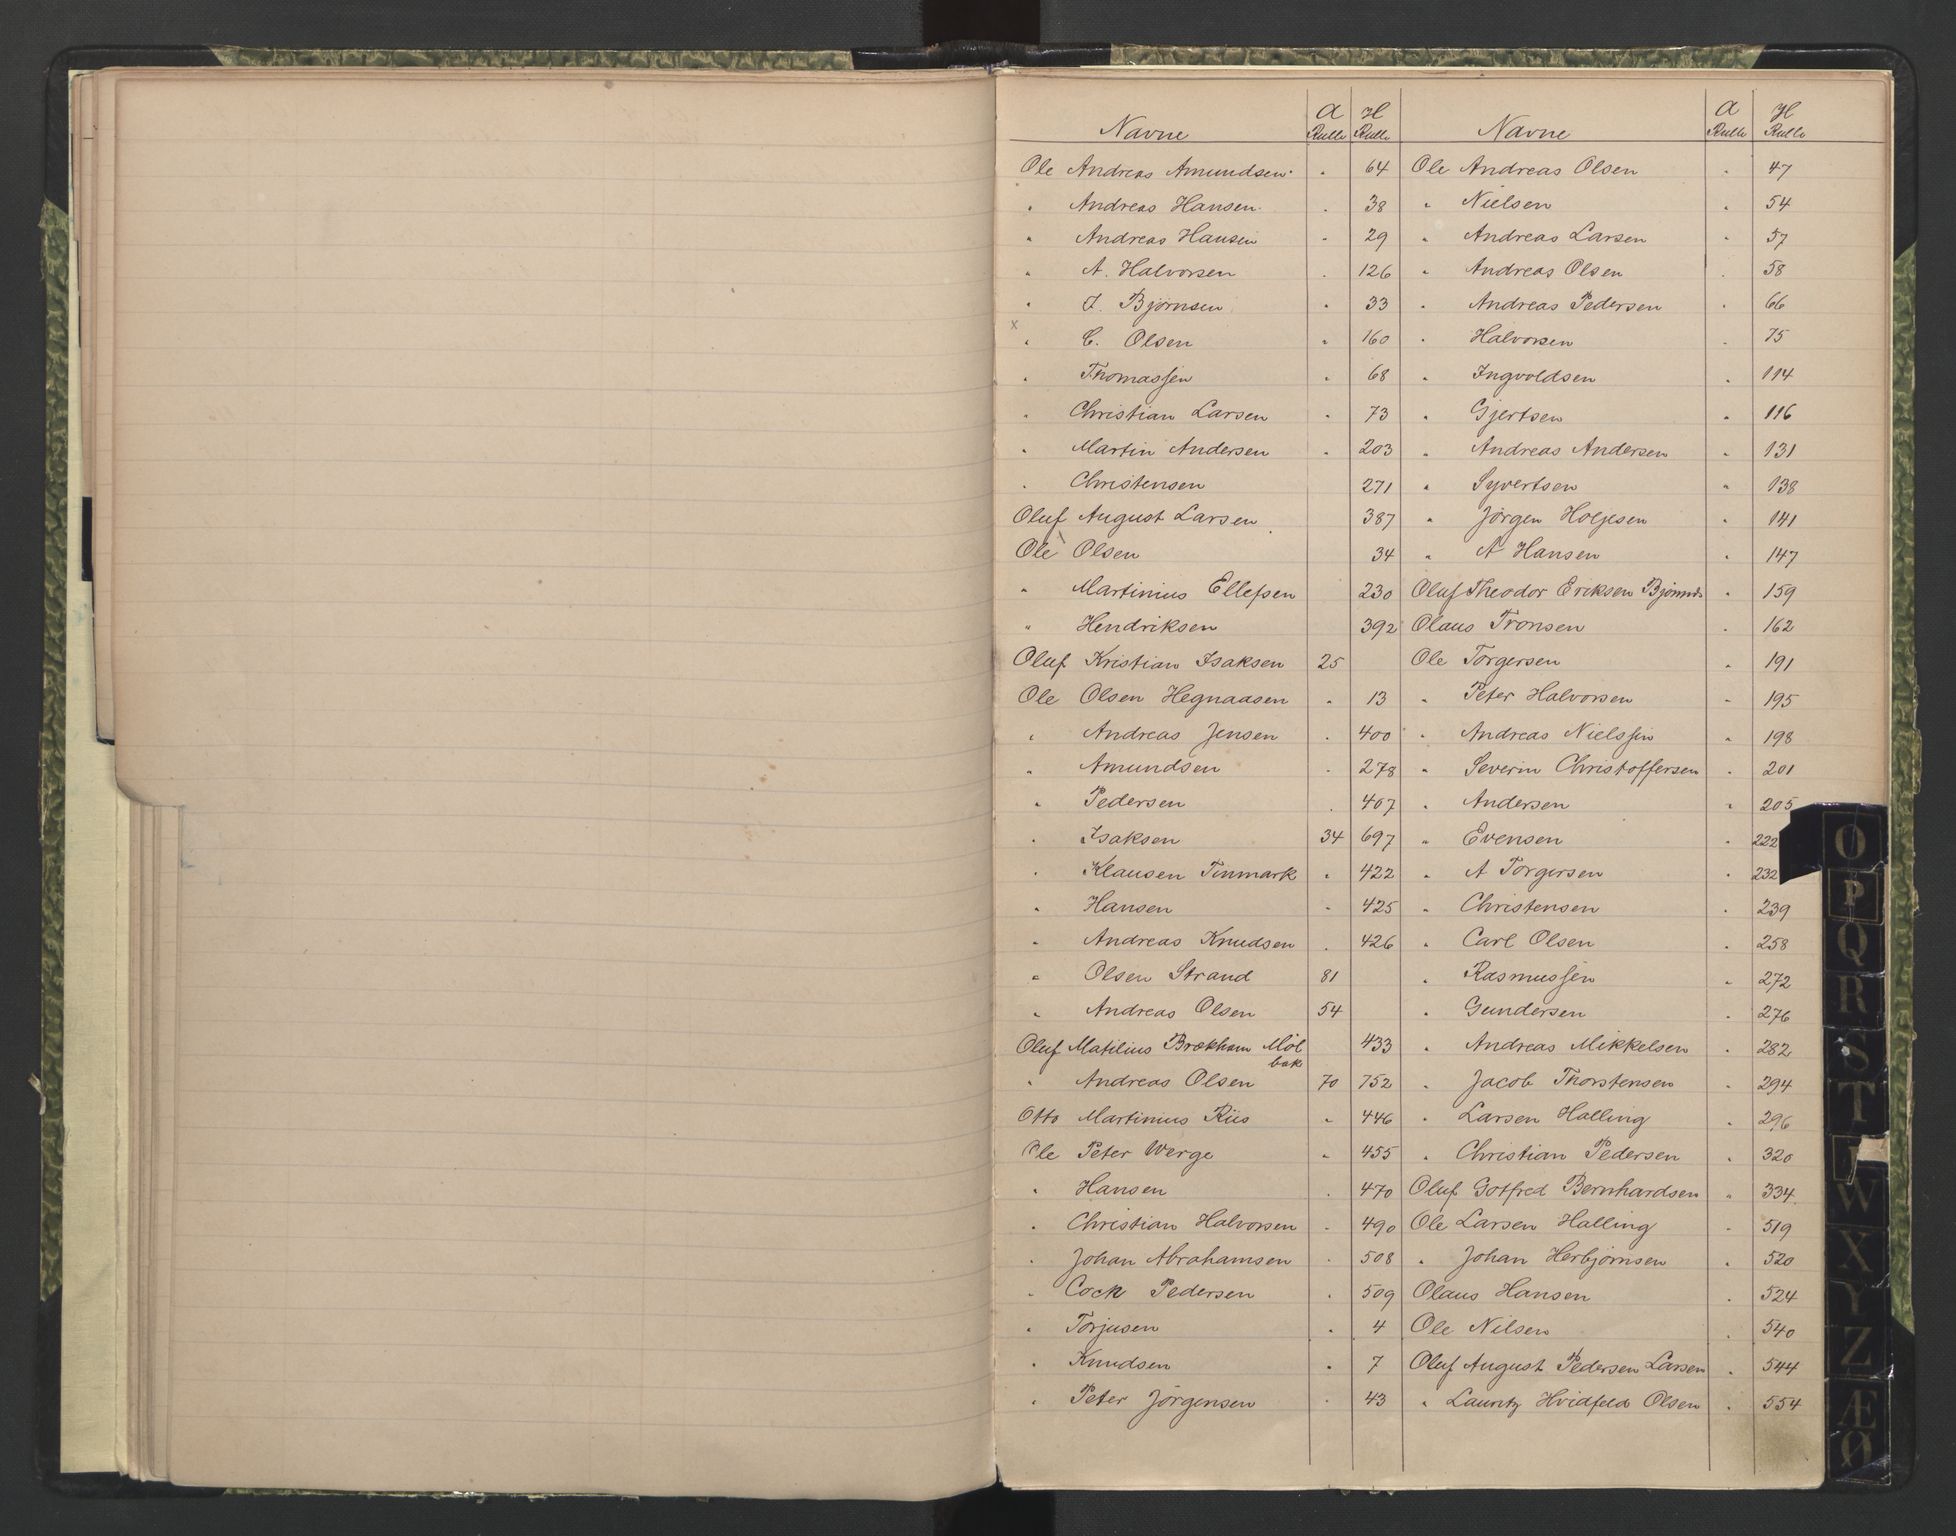 Navne A Rulle H Rulle
Ole Andreas Amundsen " 64
" Andreas Hansen " 38
" Andreas Hansen " 29
" A. Halvorsen " 126
" J. Bjørnsen " 33
x " C. Olsen " 160
" Thomassen " 68
" Christian Larsen " 73
" Martin Andersen " 203
" Christensen 271
Oluf August Larsen 387
Ole Olsen 34
" Martinius Ellefsen 230
" Hendriksen 392
Oluf Kristian Isaksen 25
Ole Olsen Hegnaasen " 13
" Andreas Jensen " 400
" Amundsen " 278
" Pedersen " 407
" Isaksen 34 697
" Klausen Tinmark " 422
" Hansen " 425
" Andreas Knudsen " 426
" Olsen Strand 81
" Andreas Olsen 54
Oluf Matilius Brækham Möl
bak 433
" Andreas Olsen 70 752
Otto Martinius Riis " 446
Ole Peter Werge " 455
" Hansen " 470
" Christian Halvorsen " 490
" Johan Abrahamsen " 508
" Cock Pedersen " 509
" Torjusen " 4
" Knudsen " 7
" Peter Jörgensen " 43
Navne A Rulle H Rulle
Ole Andreas Olsen " 47
" Nielsen " 54
" Andreas Larsen " 57
" Andreas Olsen " 58
" Andreas Pedersen " 66
" Halvorsen " 75
" Ingvoldsen " 114
" Gjertsen " 116
" Andreas Andersen " 131
" Syvertsen " 138
" Jörgen Holjesen " 141
" A Hansen " 147
Oluf Theodor Eriksen " 159
Olaus Tronsen " 162
Ole Torgersen " 191
" Peter Halvorsen " 195
" Andreas Nielssen " 198
" Severin Christoffersen " 201
" Andersen " 205
" Evensen " 222
" A Torgersen " 232
" Christensen " 239
" Carl Olsen " 258
" Rasmussen " 272
" Gundersen " 276
" Andreas Mikkelsen " 282
" Jacob Thorstensen " 294
" Larsen Halling " 296
" Christian Pedersen " 320
Oluf Gotfred Bernhardsen " 334
Ole Larsen Halling " 519
" Johan Herbjørnsen " 520
Olaus Hansen " 524
Ole Nilsen " 540
Oluf August Pedersen Larsen " 544
" Lauritz Hvidfeld Olsen " 554
O
P
Q
R
S
T
W
X
Y
Z
Æ
Ø